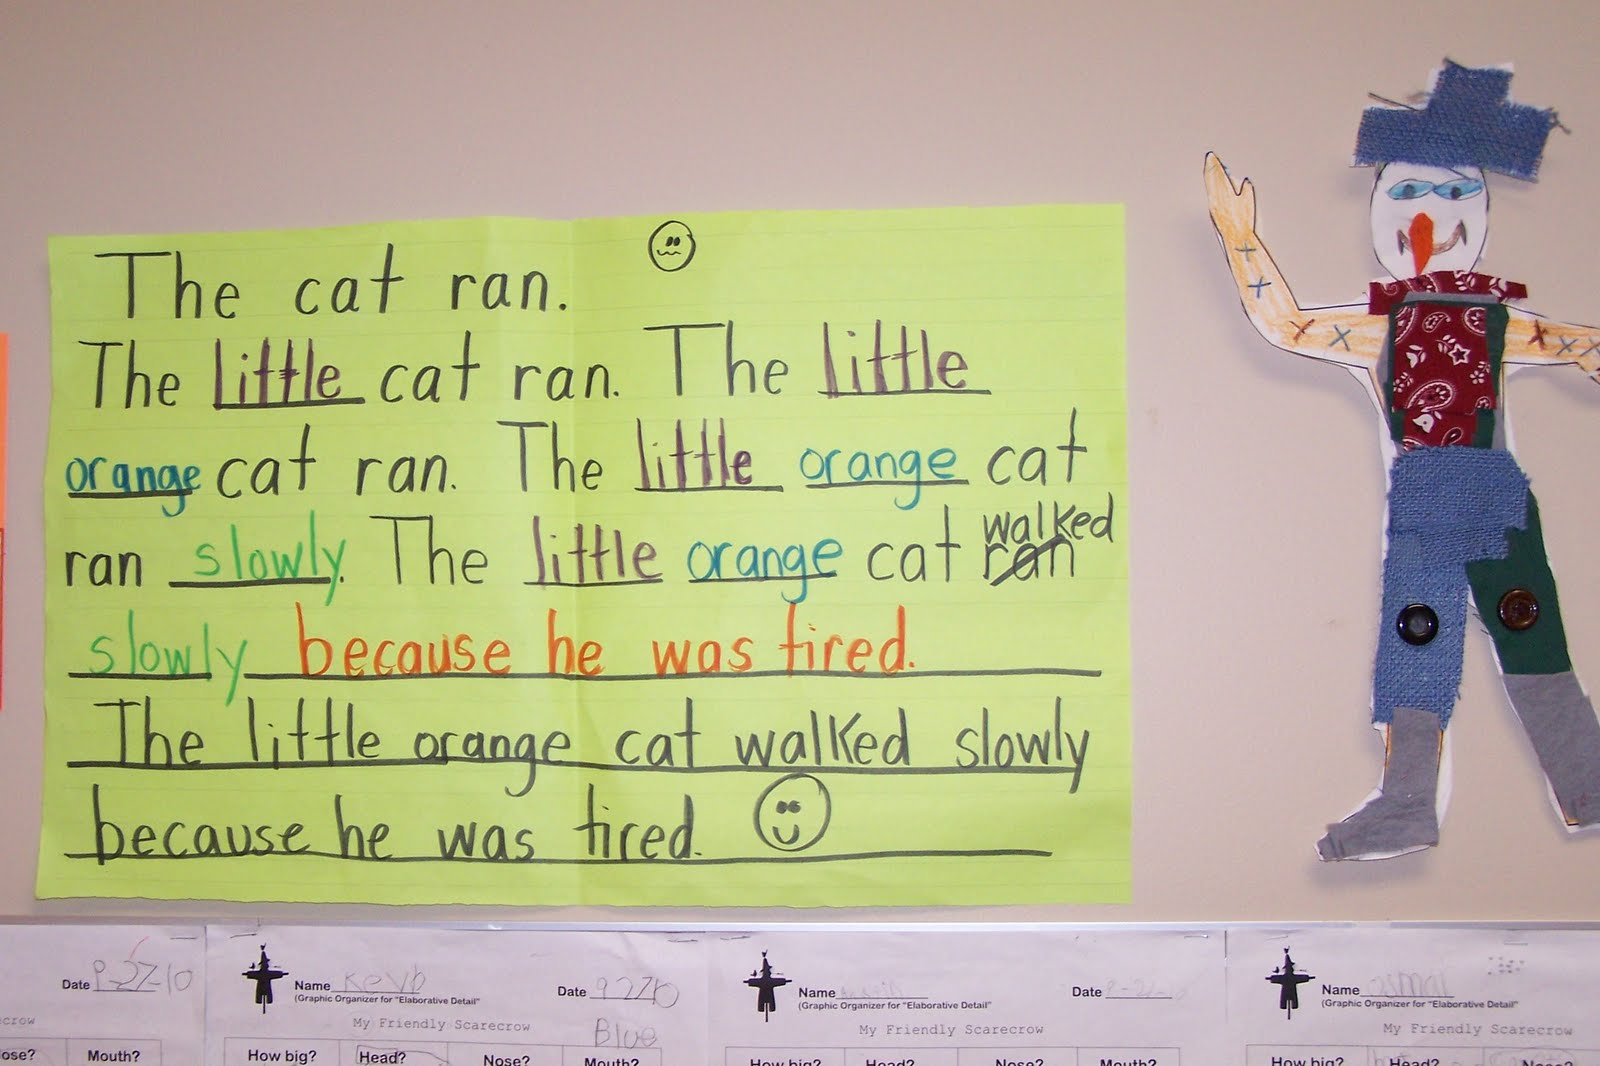 The cat ran.
The little cat ran. The little
orange cat ran. The little orange cat
ran slowly. The little orange cat walked ran
slowly because he was tired.
The little orange cat walked slowly
because he was tired.
Date 9-27-10
Name Date 92710
(Graphic Organizer for "Elaborative Detail"
My Friendly Scarecrow
Blue
How big? Head? Nose? Mouth?
Name Date
(Graphic Organizer for "Elaborative Detail"
My Friendly Scarecrow
How big? Head? Nose? Mouth?
Name
(Graphic Organizer for "Elaborative Detail"
My Friendly Scarecrow
How big? Head? Nose?
Mouth?